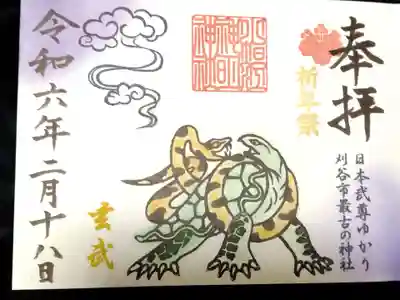 奉拝
日本武尊ゆかり
刈谷市最古の神社
祈年祭
小垣江
神明
神社
玄武
令和六年二月十八日